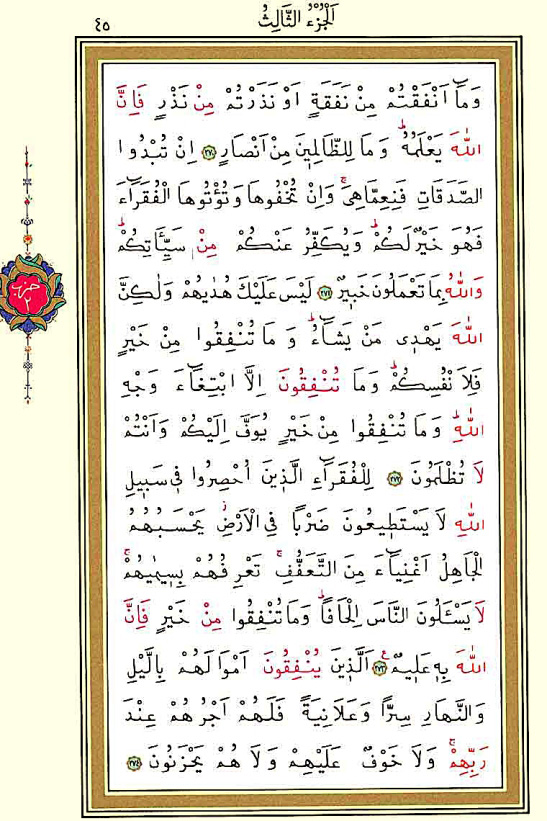 اَلْجُزْءُ الثَّالِثُ
٤٥
وَمَٓا اَنْفَقْتُمْ مِنْ نَفَقَةٍ اَوْ نَذَرْتُمْ مِنْ نَذْرٍ فَاِنَّ
اللّٰهَ يَعْلَمُهُۜ وَمَا لِلظَّالِمٖينَ مِنْ اَنْصَارٍ ﴿٢٧٠﴾ اِنْ تُبْدُوا
الصَّدَقَاتِ فَنِعِمَّا هِيَۚ وَاِنْ تُخْفُوهَا وَتُؤْتُوهَا الْفُقَرَٓاءَ
فَهُوَ خَيْرٌ لَكُمْۜ وَيُكَفِّرُ عَنْكُمْ مِنْ سَيِّـَٔاتِكُمْۜ
وَاللّٰهُ بِمَا تَعْمَلُونَ خَبٖيرٌ ﴿٢٧١﴾ لَيْسَ عَلَيْكَ هُدٰيهُمْ وَلٰكِنَّ
اللّٰهَ يَهْدٖي مَنْ يَشَٓاءُۜ وَمَا تُنْفِقُوا مِنْ خَيْرٍ
فَلِاَنْفُسِكُمْۜ وَمَا تُنْفِقُونَ اِلَّا ابْتِغَٓاءَ وَجْهِ
اللّٰهِۜ وَمَا تُنْفِقُوا مِنْ خَيْرٍ يُوَفَّ اِلَيْكُمْ وَاَنْتُمْ
لَا تُظْلَمُونَ ﴿٢٧٢﴾ لِلْفُقَرَٓاءِ الَّذٖينَ اُحْصِرُوا فٖي سَبٖيلِ
اللّٰهِ لَا يَسْتَطٖيعُونَ ضَرْبًا فِي الْاَرْضِۘ يَحْسَبُهُمُ
الْجَاهِلُ اَغْنِيَٓاءَ مِنَ التَّعَفُّفِۚ تَعْرِفُهُمْ بِسٖيمٰيهُمْۚ
لَا يَسْـَٔلُونَ النَّاسَ اِلْحَافًاۜ وَمَا تُنْفِقُوا مِنْ خَيْرٍ فَاِنَّ
اللّٰهَ بِهٖ عَلٖيمٌ ﴿٢٧٣﴾ اَلَّذٖينَ يُنْفِقُونَ اَمْوَالَهُمْ بِالَّيْلِ
وَالنَّهَارِ سِرًّا وَعَلَانِيَةً فَلَهُمْ اَجْرُهُمْ عِنْدَ
رَبِّهِمْۚ وَلَا خَوْفٌ عَلَيْهِمْ وَلَا هُمْ يَحْزَنُونَ ﴿٢٧٤﴾
حزب